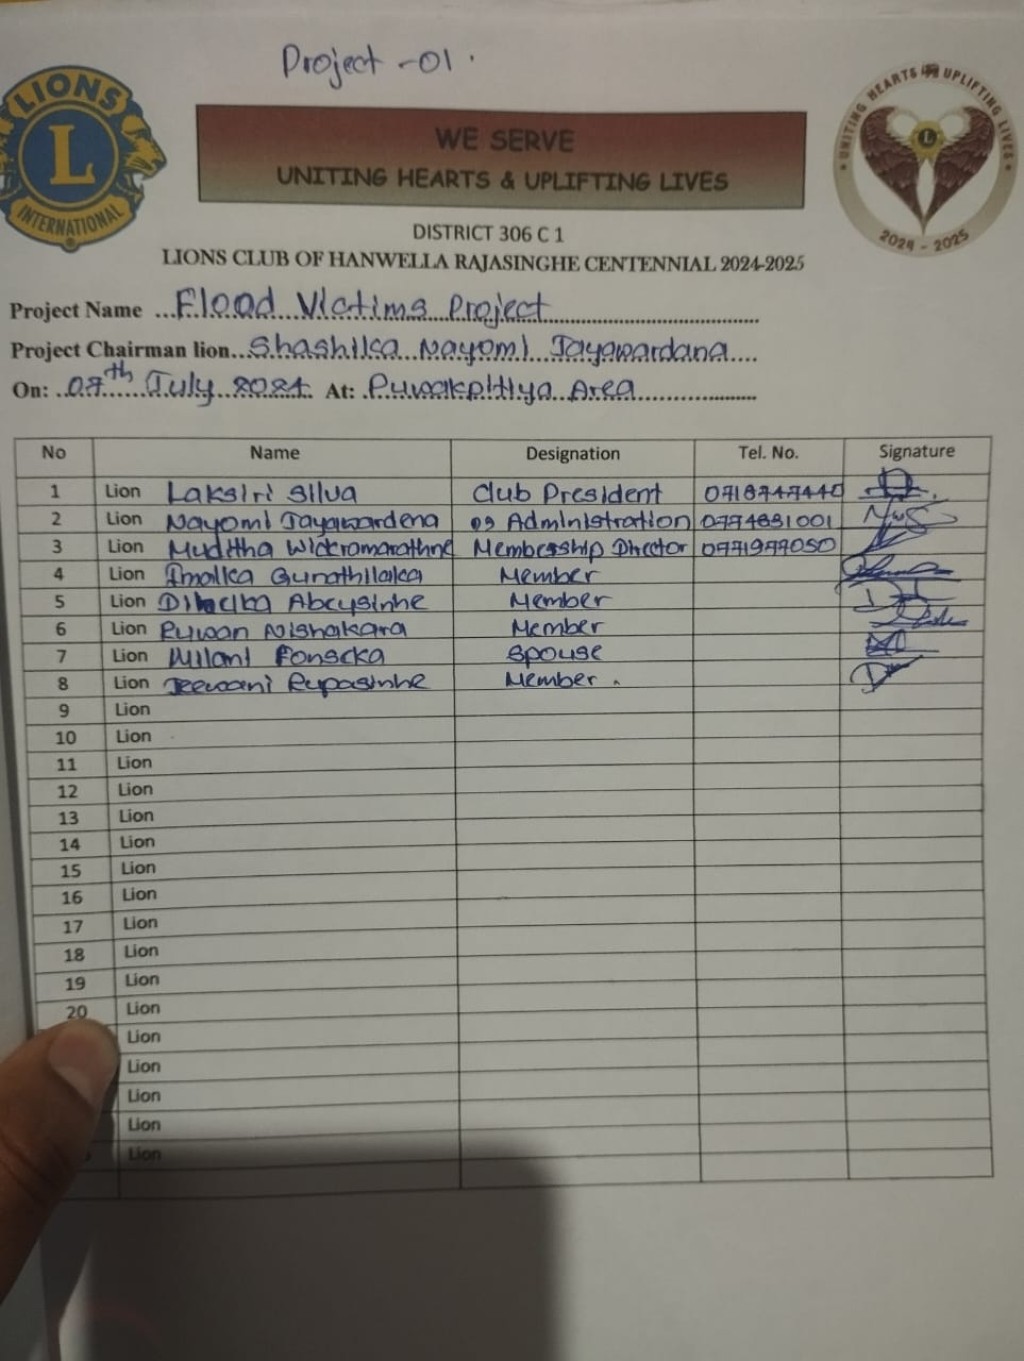 Project -01.
LIONS
L
INTERNATIONAL
UNITING HEARTS UPLIFTING LIVES
2024 - 2025
WE SERVE
UNITING HEARTS & UPLIFTING LIVES
DISTRICT 306 C 1
LIONS CLUB OF HANWELLA RAJASINGHE CENTENNIAL 2024-2025
Project Name Flood Victims Project
Project Chairman lion Shashika Nayomi Jayawardana
On: 07th July 2024 At: Puwakpitiya Area
No Name Designation Tel. No. Signature
1 Lion Laksiri Silva Club President
2 Lion Nayomi Jayawardena Administration
3 Lion Muditha Wickramarathne Membership Director
4 Lion Imalka Gunathilaka Member
5 Lion Member
6 Lion Ruwan Nishakara Member
7 Lion Milani Fonseka Spouse
8 Lion Jeewani Rupasinhe Member.
9 Lion
10 Lion
11 Lion
12 Lion
13 Lion
14 Lion
15 Lion
16 Lion
17 Lion
18 Lion
19 Lion
20 Lion
Lion
Lion
Lion
Lion
Lion